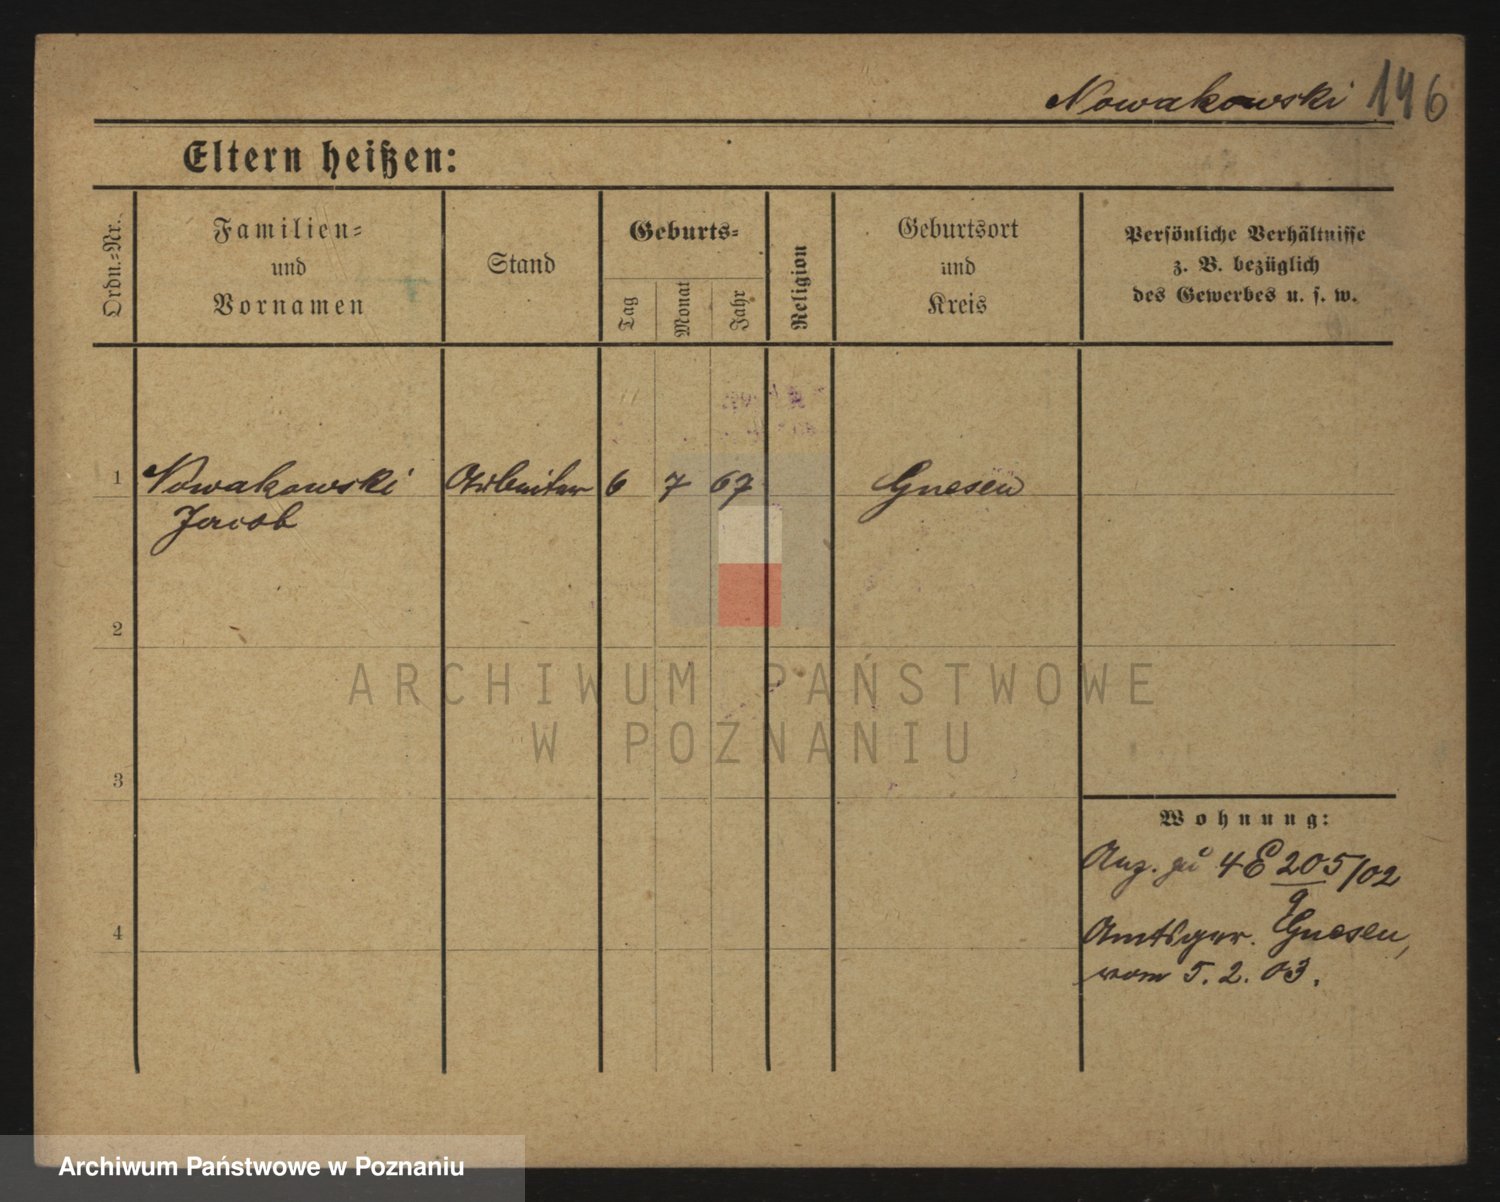 Nowakowski 146
Eltern heißen:
Ordn.-Nr.
Familien-
und
Vornamen
Stand
Geburts-
Tag
Monat
Jahr
Religion
Geburtsort
und
Kreis
Persönliche Verhältnisse
z. B. bezüglich
des Gewerbes u. s. w.
1 Nowakowski Arbeiter 6 7 67 Gnesen
Jacob
2
ARCHIWUM PAŃSTWOWE
W POZNANIU
3
Wohnung:
Anz. zu 4 E 205/02
9
4
Amtsger. Gnesen,
vom 5. 2. 03.
Archiwum Państwowe w Poznaniu